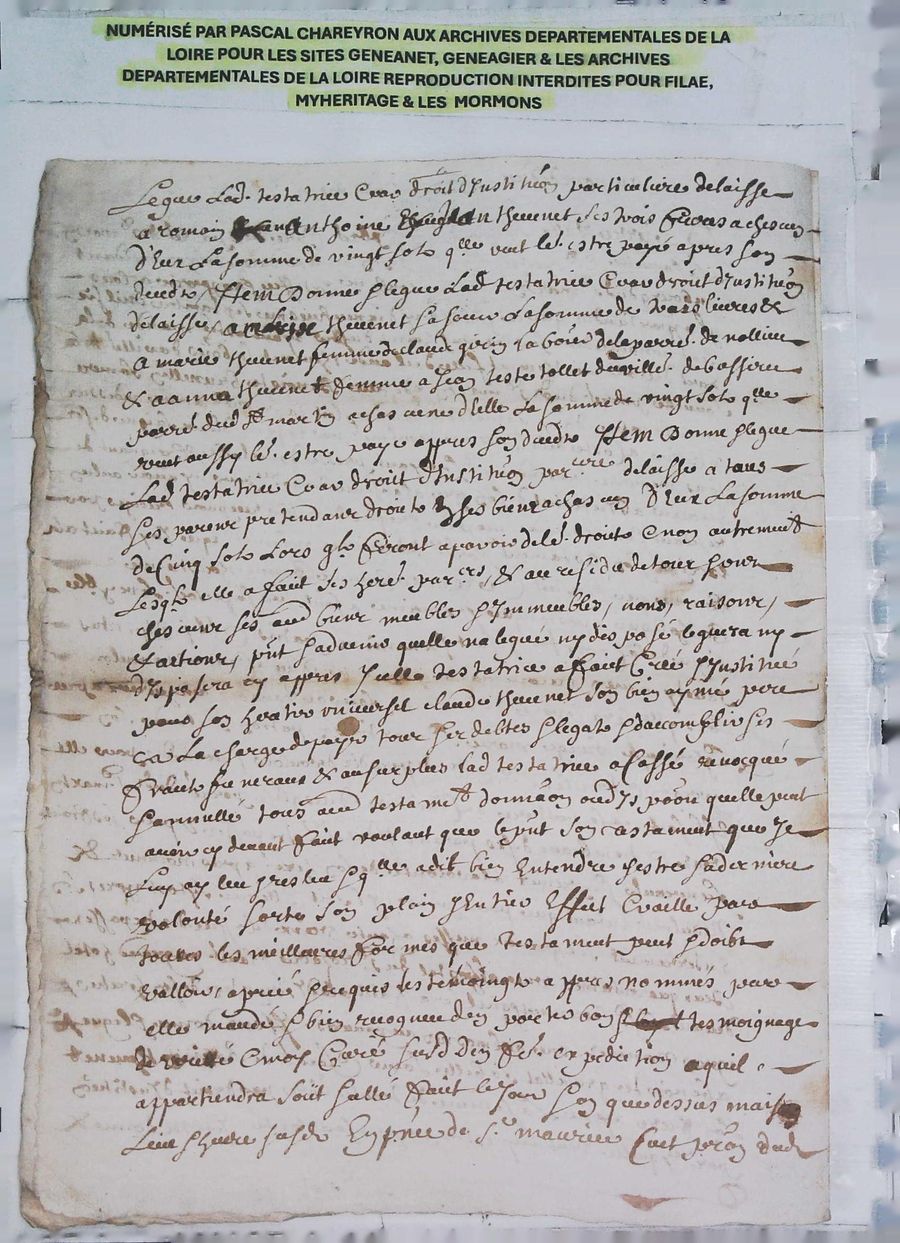 NUMÉRISÉ PAR PASCAL CHAREYRON AUX ARCHIVES DEPARTEMENTALES DE LA
LOIRE POUR LES SITES GENEANET, GENEAGIER & LES ARCHIVES
DEPARTEMENTALES DE LA LOIRE REPRODUCTION INTERDITES POUR FILAE,
MYHERITAGE & LES MORMONS
Legue Lad. testatrice & par droit d'Institũon particuliere delaisse
a romain anthoine thevenet ses trois freres a chescun
d'Eux La somme de vingt solz qlle veut le. estre payé apres son
deceds Item Donne & legue Lad testatrice & par droit d'Institũon
delaisse thevenet sa soeur La somme de trois livres &
A marie thevenet femme de claude de la parre. de
& a anna thevenet femme a Jean teste du ville. de
parre. dud St martin a chascune d'elle La somme de vingt solz qlle
veut aussy le. estre payé appres son deceds Item Donne & legue
Lad testatrice & par droit d'Institũon par.cre delaisse a tous
ses parens pretendans droitz ses biens a chascun d'Eux La somme
de Cinq solz Lors qlz feront aparoir de le. droitz & non autrement
Lesqlz elle a fait ses here. par.rs & au residu de tous &
chescuns ses aud biens meubles & Immeubles, noms, raisons,
& actions, pũt & advenir quelle na legué ny disposé leguera ny
disposera cy appres Icelle testatrice a fait Créé & Institué
pour son heritier universel claude thevenet son bien aymé pere
a La charge de payer tous ses debtes & legatz & daccomplir ses
funeraux & au surplus lad testatrice a Cassé revocqué
& annullé tous aud testamet donnaõn quelle peut
avoir cy devant fait voulant que le pũt son testament que Je
Luy ay leu & releu & qlle a dit bien Entendre & estre sa derniere
volonté sorte son plain & Entier Effect & vaille par
toutes les meilleures formes que testament peut & doibt
valloir, apriés & requis les témoingtz appres nommés par
elle mandé & bien recogneu den porter bon tesmoignage
de verité & moy Curé susd den fe. expedition a quil
appartiendra soit fait le Jour & An que dessus maison
Lieu & heure susd. En pñce de Sr maurice